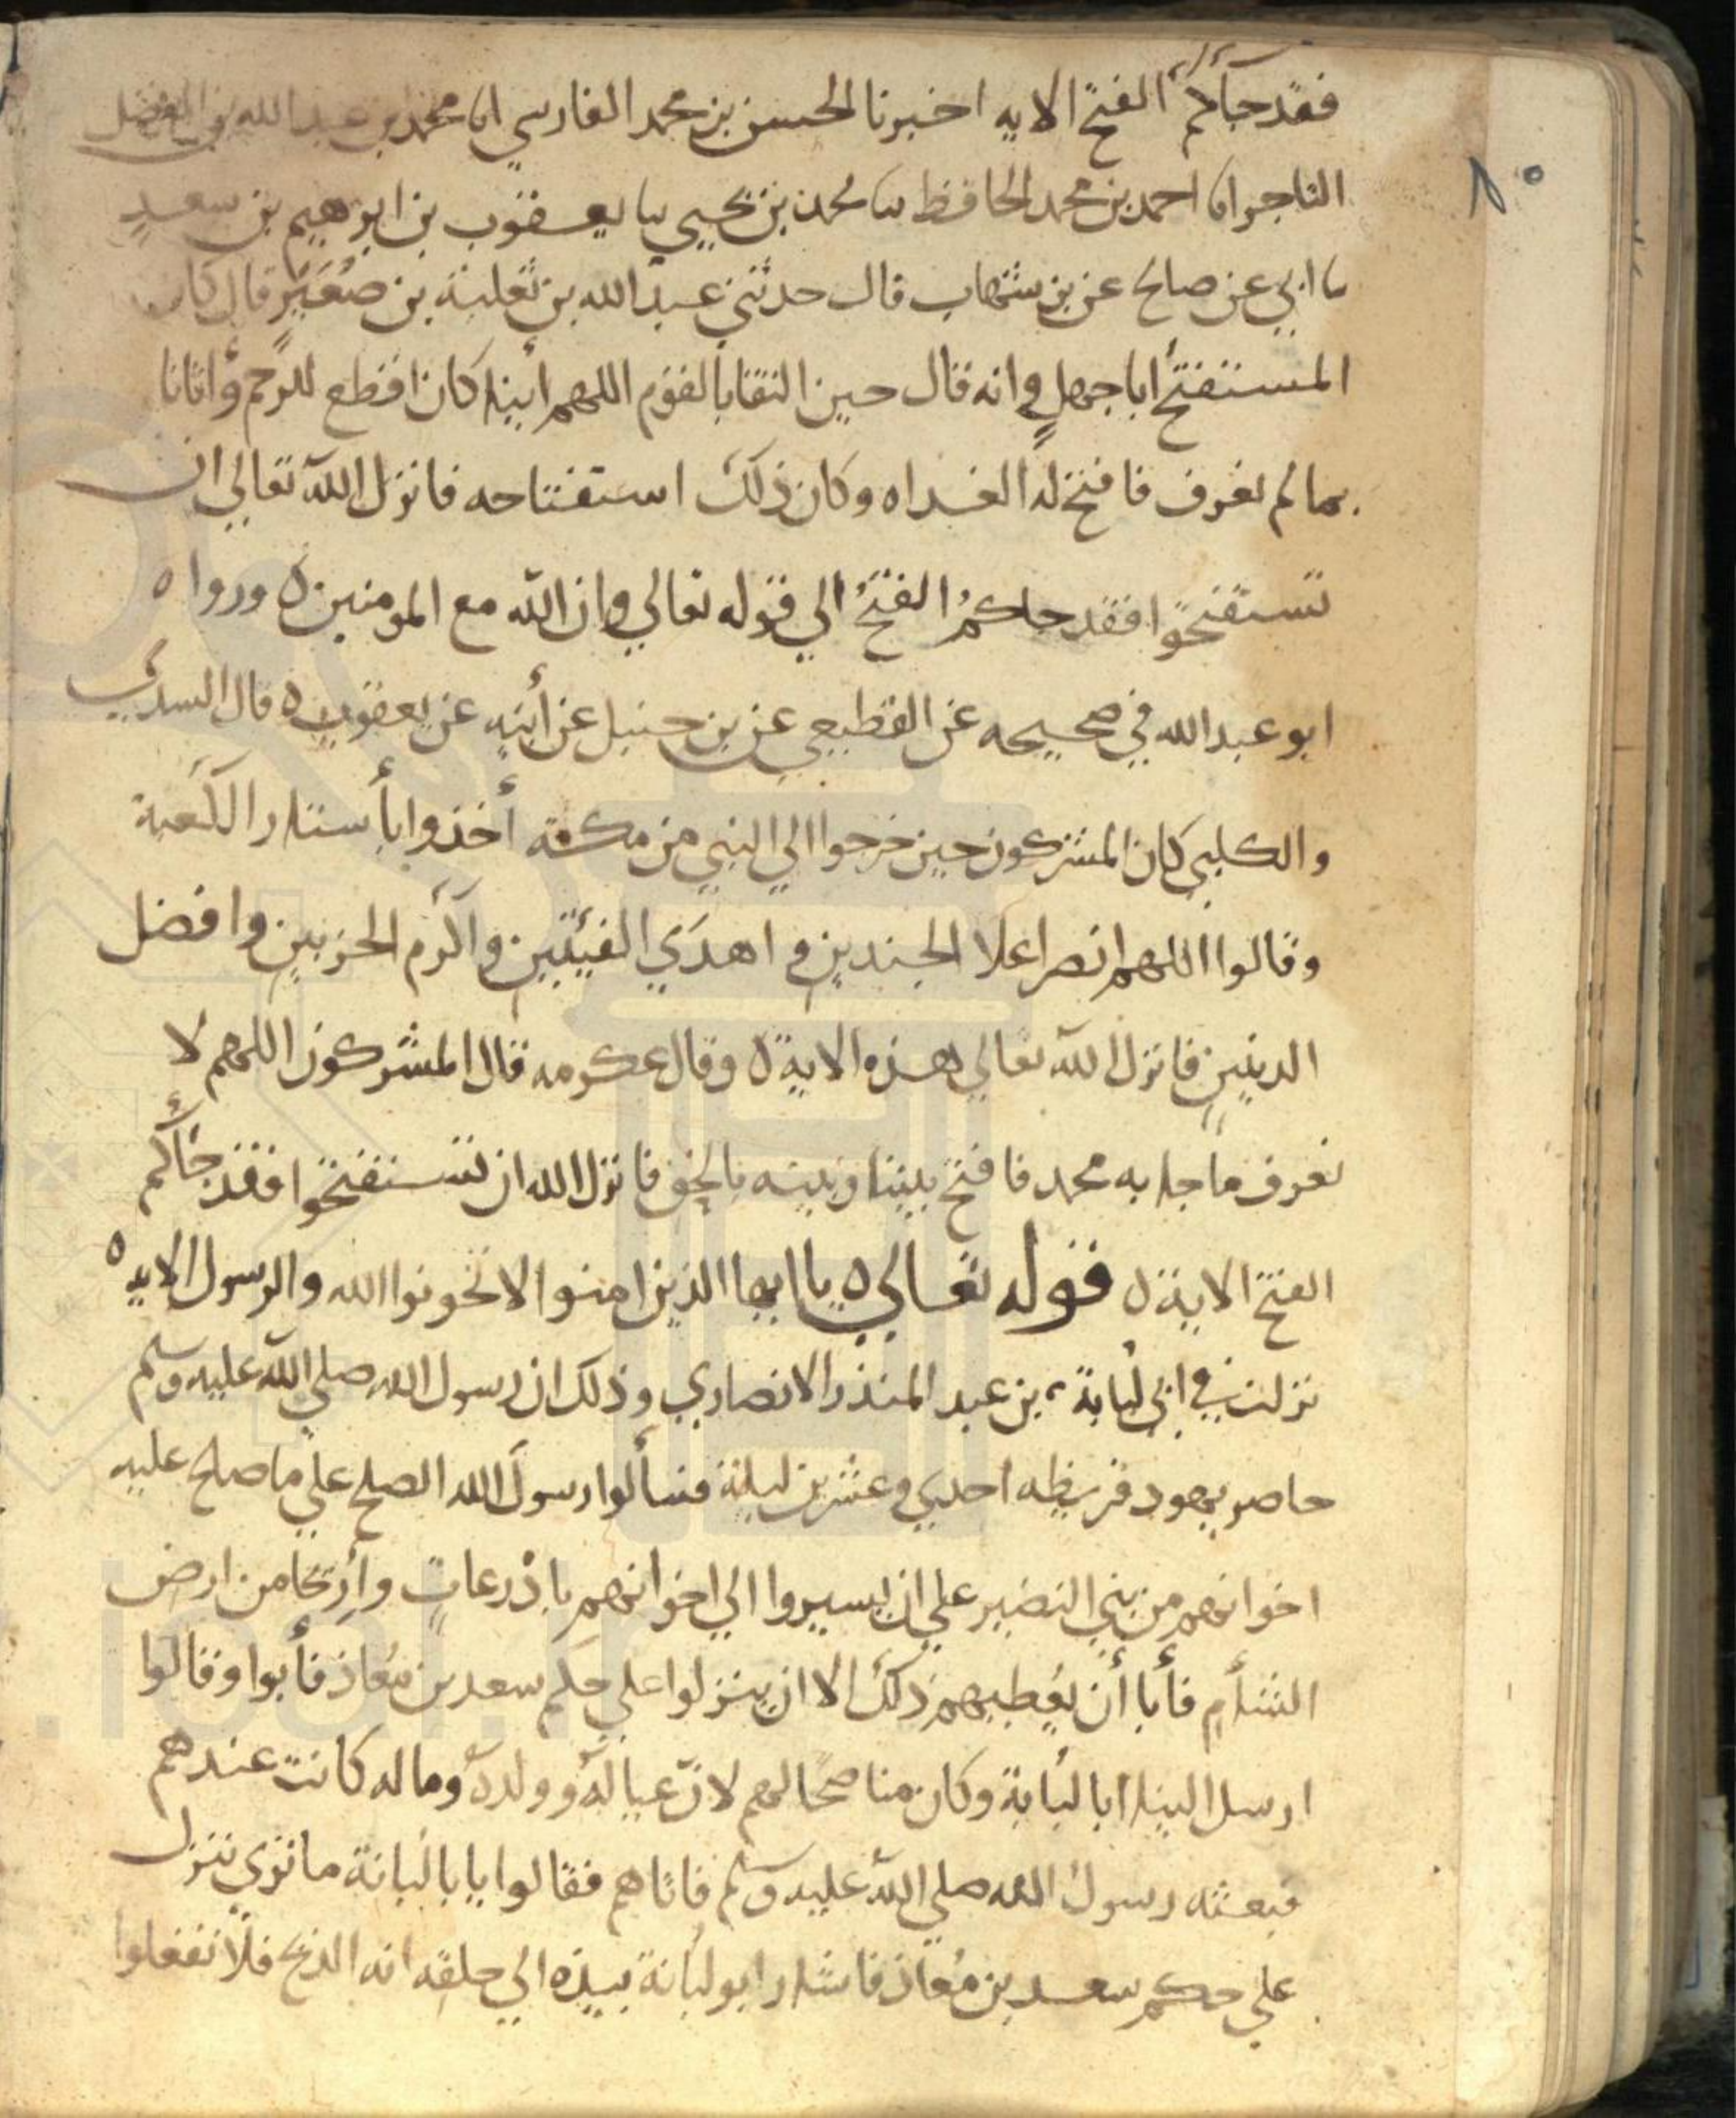 فقد جآكم الفتح الايه اخبرنا الحسن بن محمد الفارسي انا محمد بن عبد الله بن الفضل
التاجر انا احمد بن محمد الحافظ سا محمد بن يحيي سا يعقوب بن ابرهيم بن سعد
سا ابي عن صالح عن بن شهاب قال حدثني عبد الله بن ثعلبة بن صُعَير قال كان
المستفتح أبا جهلٍ وانه قال حين التقا بالقوم اللهم أينا كان اقطع للرحم وأتانا
بما لم نعرف فافتح له الغداه وكان ذلك استفتاحه فانزل الله تعالي ان
تستفتحوا فقد جاكمُ الفتحُ الي قوله تعالي وان الله مع المومنين ه ورواه
ابو عبد الله في صحيحه عن القطيعي عن بن حنبل عن أبيه عن يعقوب ه قال السدي
والكلبي كان المشركون حين خرجوا الي النبي من مكة أخذوا بأستار الكعبة
وقالوا اللهم انصر اعلا الجندين و اهدَي الفيئتين وأكرم الحزبين وافضل
الدينين فانزل الله تعالي هذه الاية ه وقال عكرمه قال المشركون اللهم لا
نعرف ما جا به محمد فافتح بيننا وبينه بالحق فانزل الله ان تستفتحوا فقد جآكم
الفتح الاية ه قوله تعالي ه يا ايها الذين امنوا لا تخونوا الله والرسول الايه ه
نزلت في ابي لُبابة بن عبد المنذر الانصاري وذلك ان رسول الله صلي الله عليه وسلم
حاصر يهود قريظه احدي وعشرين ليلة فسألوا رسول الله الصلح علي ما صالح عليه
اخوانهم من بني النضير علي ان يسيروا الي اخوانهم باذرعاتٍ وأرَيحا من ارض
الشأم فأبا أن يُعطيهم ذلك الا ان ينزلوا علي حكم سعد بن مُعاذ فأبوا وقالوا
ارسل الينا ابا لبُابة وكان مناصحًا لهم لان عيالَهُ وولدهُ وماله كانت عندهم
فبعثه رسول الله صلي الله عليه وسلم فاتاهم فقالوا يابا لبابة ما تري ننزل
علي حكم سعد بن مُعاذ فاشار ابو لبابة بيده الي حلقه انه الذبح فلا تفعلوا